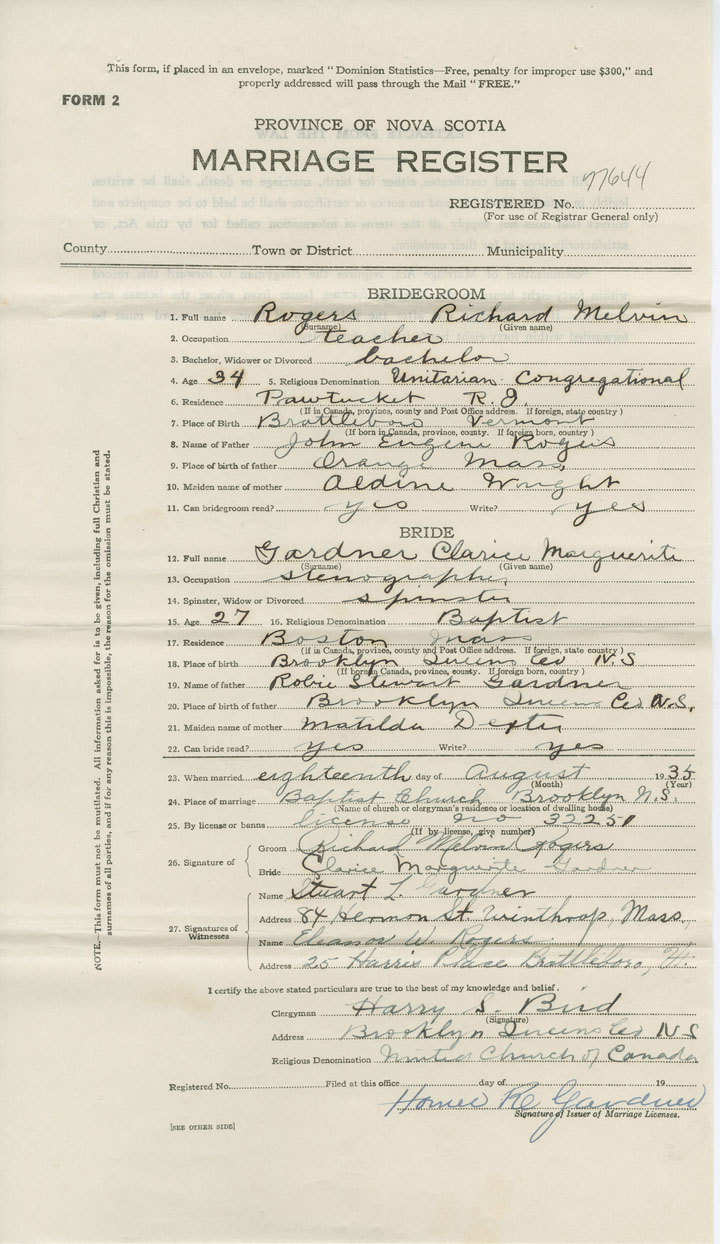 This form, if placed in an envelope, marked "Dominion Statistics—Free, penalty for improper use $300," and
properly addressed will pass through the Mail "FREE."
FORM 2
PROVINCE OF NOVA SCOTIA
MARRIAGE REGISTER
REGISTERED No. 97644
(For use of Registrar General only)
County Town or District Municipality
BRIDEGROOM
1. Full name Rogers Richard Melvin
(Surname) (Given name)
2. Occupation teacher
3. Bachelor, Widower or Divorced bachelor
4. Age 34 5. Religious Denomination Unitarian Congregational
6. Residence Pawtucket R.I.
(If in Canada, province, county and Post Office address. If foreign, state country)
7. Place of Birth Brattleboro Vermont
(If born in Canada, province, county. If foreign born, country)
8. Name of Father John Eugene Rogers
9. Place of birth of father Orange Mass.
10. Maiden name of mother Aldine Wright
11. Can bridegroom read? yes Write? yes
BRIDE
12. Full name Gardner Clarice Marguerite
(Surname) (Given name)
13. Occupation stenographer
14. Spinster, Widow or Divorced spinster
15. Age 27 16. Religious Denomination Baptist
17. Residence Boston Mass
(If in Canada, province, county and Post Office address. If foreign, state country)
18. Place of birth Brooklyn Queens Co N.S
(If born in Canada, province, county. If foreign born, country)
19. Name of father Robie Stewart Gardner
20. Place of birth of father Brooklyn Queens Co N.S.
21. Maiden name of mother Matilda Dexter
22. Can bride read? yes Write? yes
23. When married eighteenth day of August 1935
(Month) (Year)
24. Place of marriage Baptist Church Brooklyn N.S.
(Name of church or clergyman's residence or location of dwelling house)
25. By license or banns license no 32251
(If by license, give number)
26. Signature of Groom Richard Melvin Rogers
Bride Clarice Marguerite Gardner
27. Signatures of Witnesses Name Stuart L. Gardner
Address 84 Hermon St. Winthrop, Mass.
Name Eleanor W. Rogers
Address 25 Harris Place Brattleboro, Vt.
I certify the above stated particulars are true to the best of my knowledge and belief.
Clergyman Harry S. Bird
(Signature)
Address Brooklyn Queens Co N S
Religious Denomination United Church of Canada
Registered No. Filed at this office day of 19
Homer R Gardner
Signature of Issuer of Marriage Licenses.
[SEE OTHER SIDE]
NOTE.—This form must not be mutilated. All information asked for is to be given, including full Christian and
surnames of all parties, and if for any reason this is impossible, the reason for the omission must be stated.